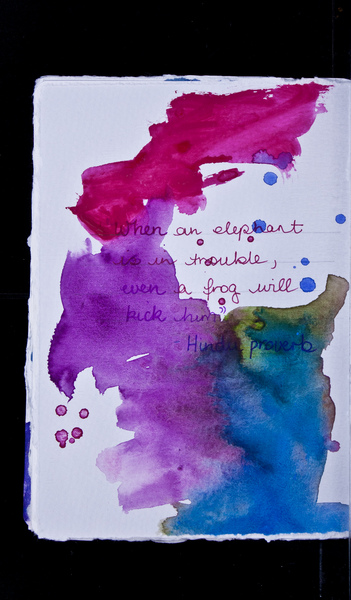 "When an elephant
is in trouble,
even a frog will
kick him"
Hindu proverb